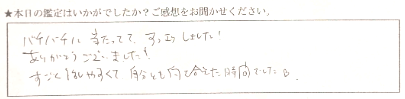 ★本日の鑑定はいかがでしたか？ご感想をお聞かせください。
バチバチに当たってて、すっきりしました！
ありがとうございました！
すごく話しやすくて自分とも向き合えた時間でした